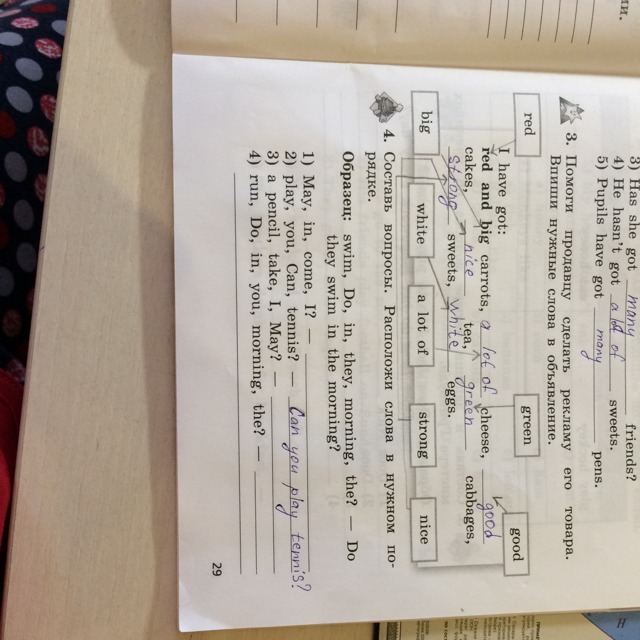 3) Has she got many friends?
4) He hasn't got a lot of sweets.
5) Pupils have got many pens.
3. Помоги продавцу сделать рекламу его товара.
Впиши нужные слова в объявление.
red
green
good
I have got:
red and big carrots, a lot of cheese, good
cakes, nice tea, green cabbages,
strong sweets, white eggs.
big
white
a lot of
strong
nice
4. Составь вопросы. Расположи слова в нужном по-
рядке.
Образец: swim, Do, in, they, morning, the? — Do
they swim in the morning?
1) May, in, come, I? —
2) play, you, Can, tennis? — Can you play tennis?
3) a pencil, take, I, May? —
4) run, Do, in, you, morning, the? —
29